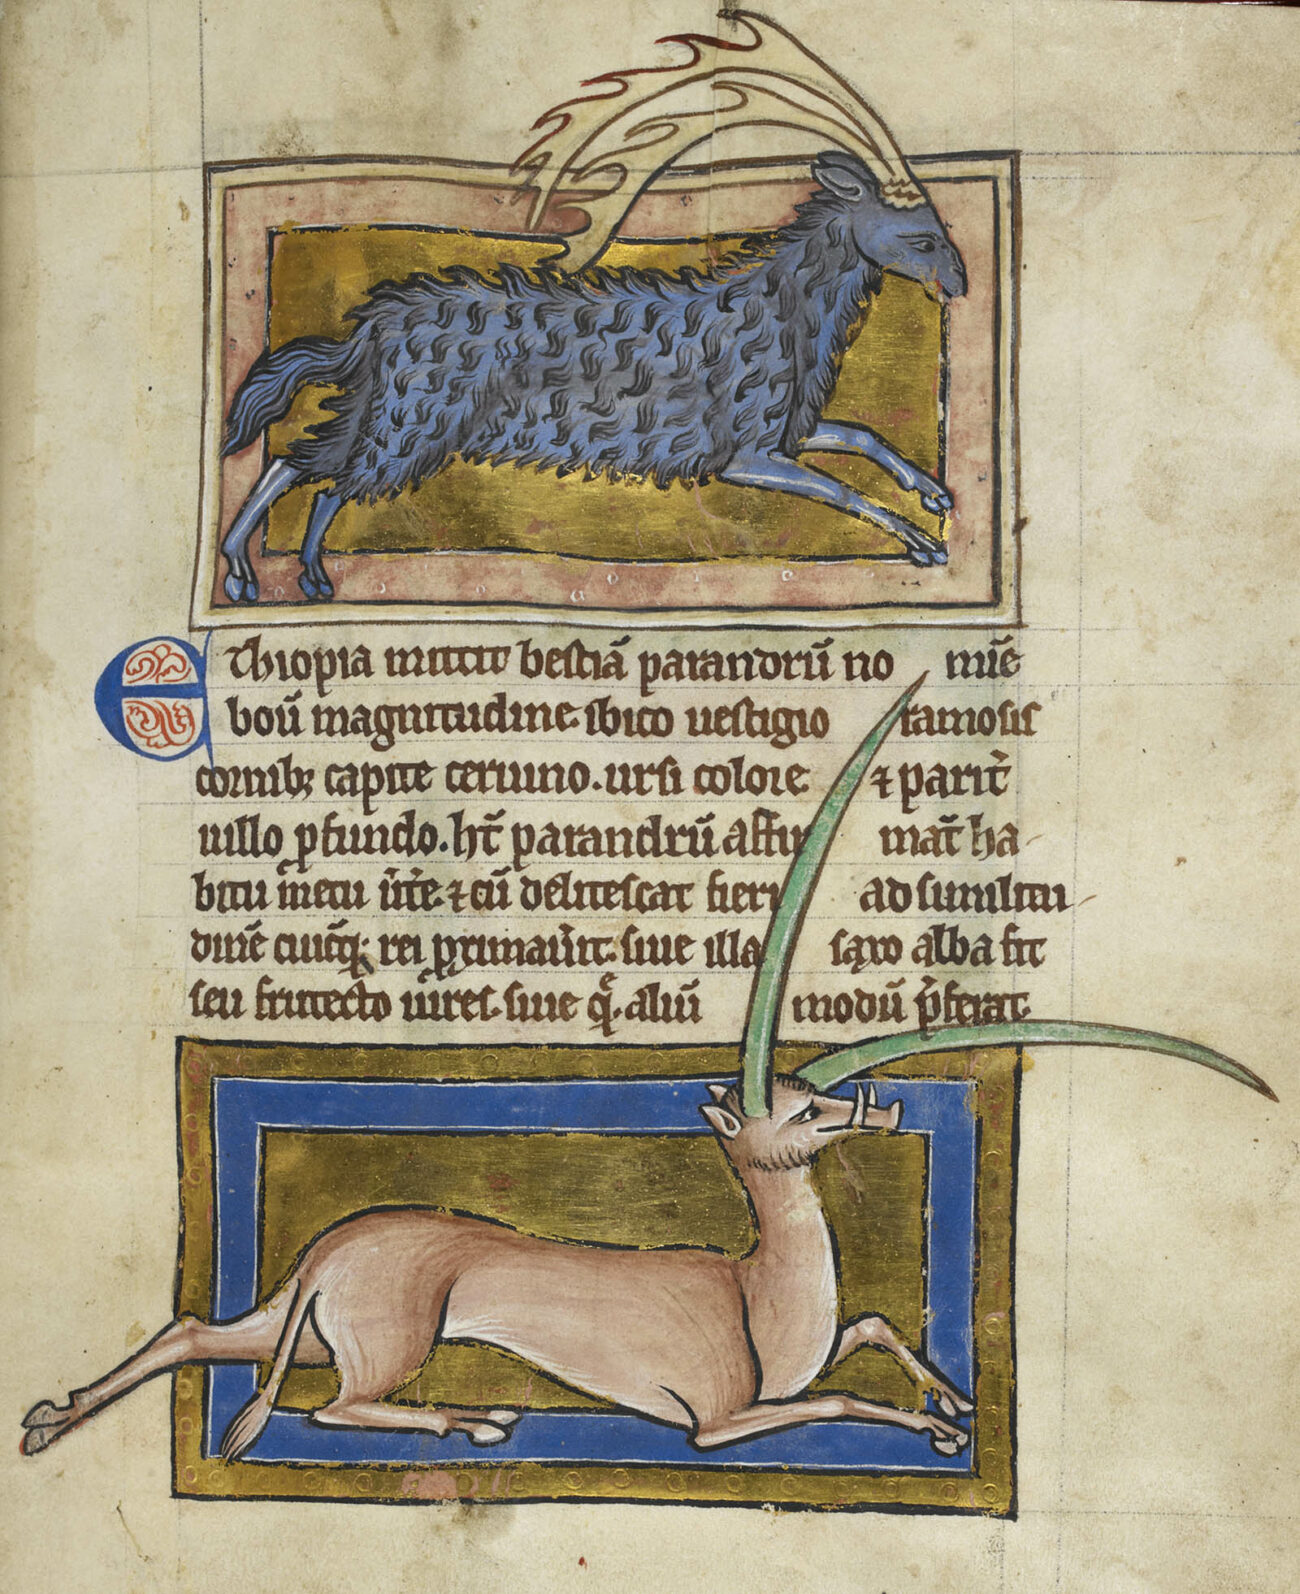 Ethiopia mittit bestiā parandrū no mīe
boū magnitudine. ibico uestigio ramosis
cornibꝫ capite ceruino. ursi colore ⁊ parit̄
uillo ꝓfundo. ht̄ parandrū affir mat̄ ha
bitū metu u̓te̓. ⁊ cū delitescat fieri ad similitu
dinē cuicūqꝫ rei ꝓximau̓it. siue illa saxo alba sit
seu frutecto uires. siue q̄. aliū modū p̄ferat